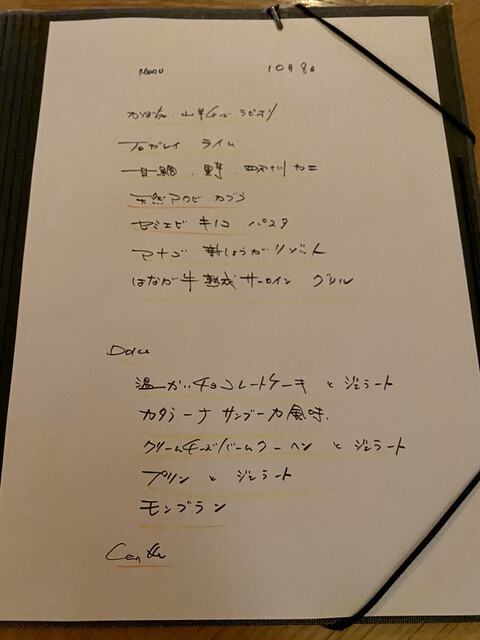 Menu 10月8日
かぼちゃ、山羊チーズ ラビオリ
石ガレイ ライム
甘鯛、野、四万十川 カニ
天然アワビ カブラ
セミエビ キノコ パスタ
アナゴ 新しょうがリゾット
はなが牛熟成サーロイン グリル
Dolce
温かいチョコレートケーキ と ジェラート
カタラーナ サンブーカ風味.
クリームチーズバームクーヘン と ジェラート
プリン と ジェラート
モンブラン